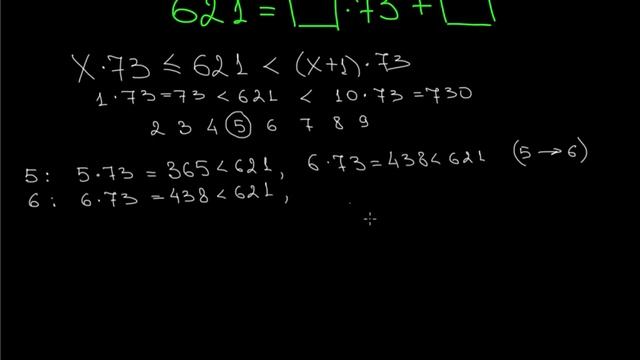 621 = □ · 73 + □
x · 73 ≤ 621 < (x+1) · 73
1 · 73 = 73 < 621 < 10 · 73 = 730
2 3 4 5 6 7 8 9
5: 5 · 73 = 365 < 621, 6 · 73 = 438 < 621 (5 → 6)
6: 6 · 73 = 438 < 621,